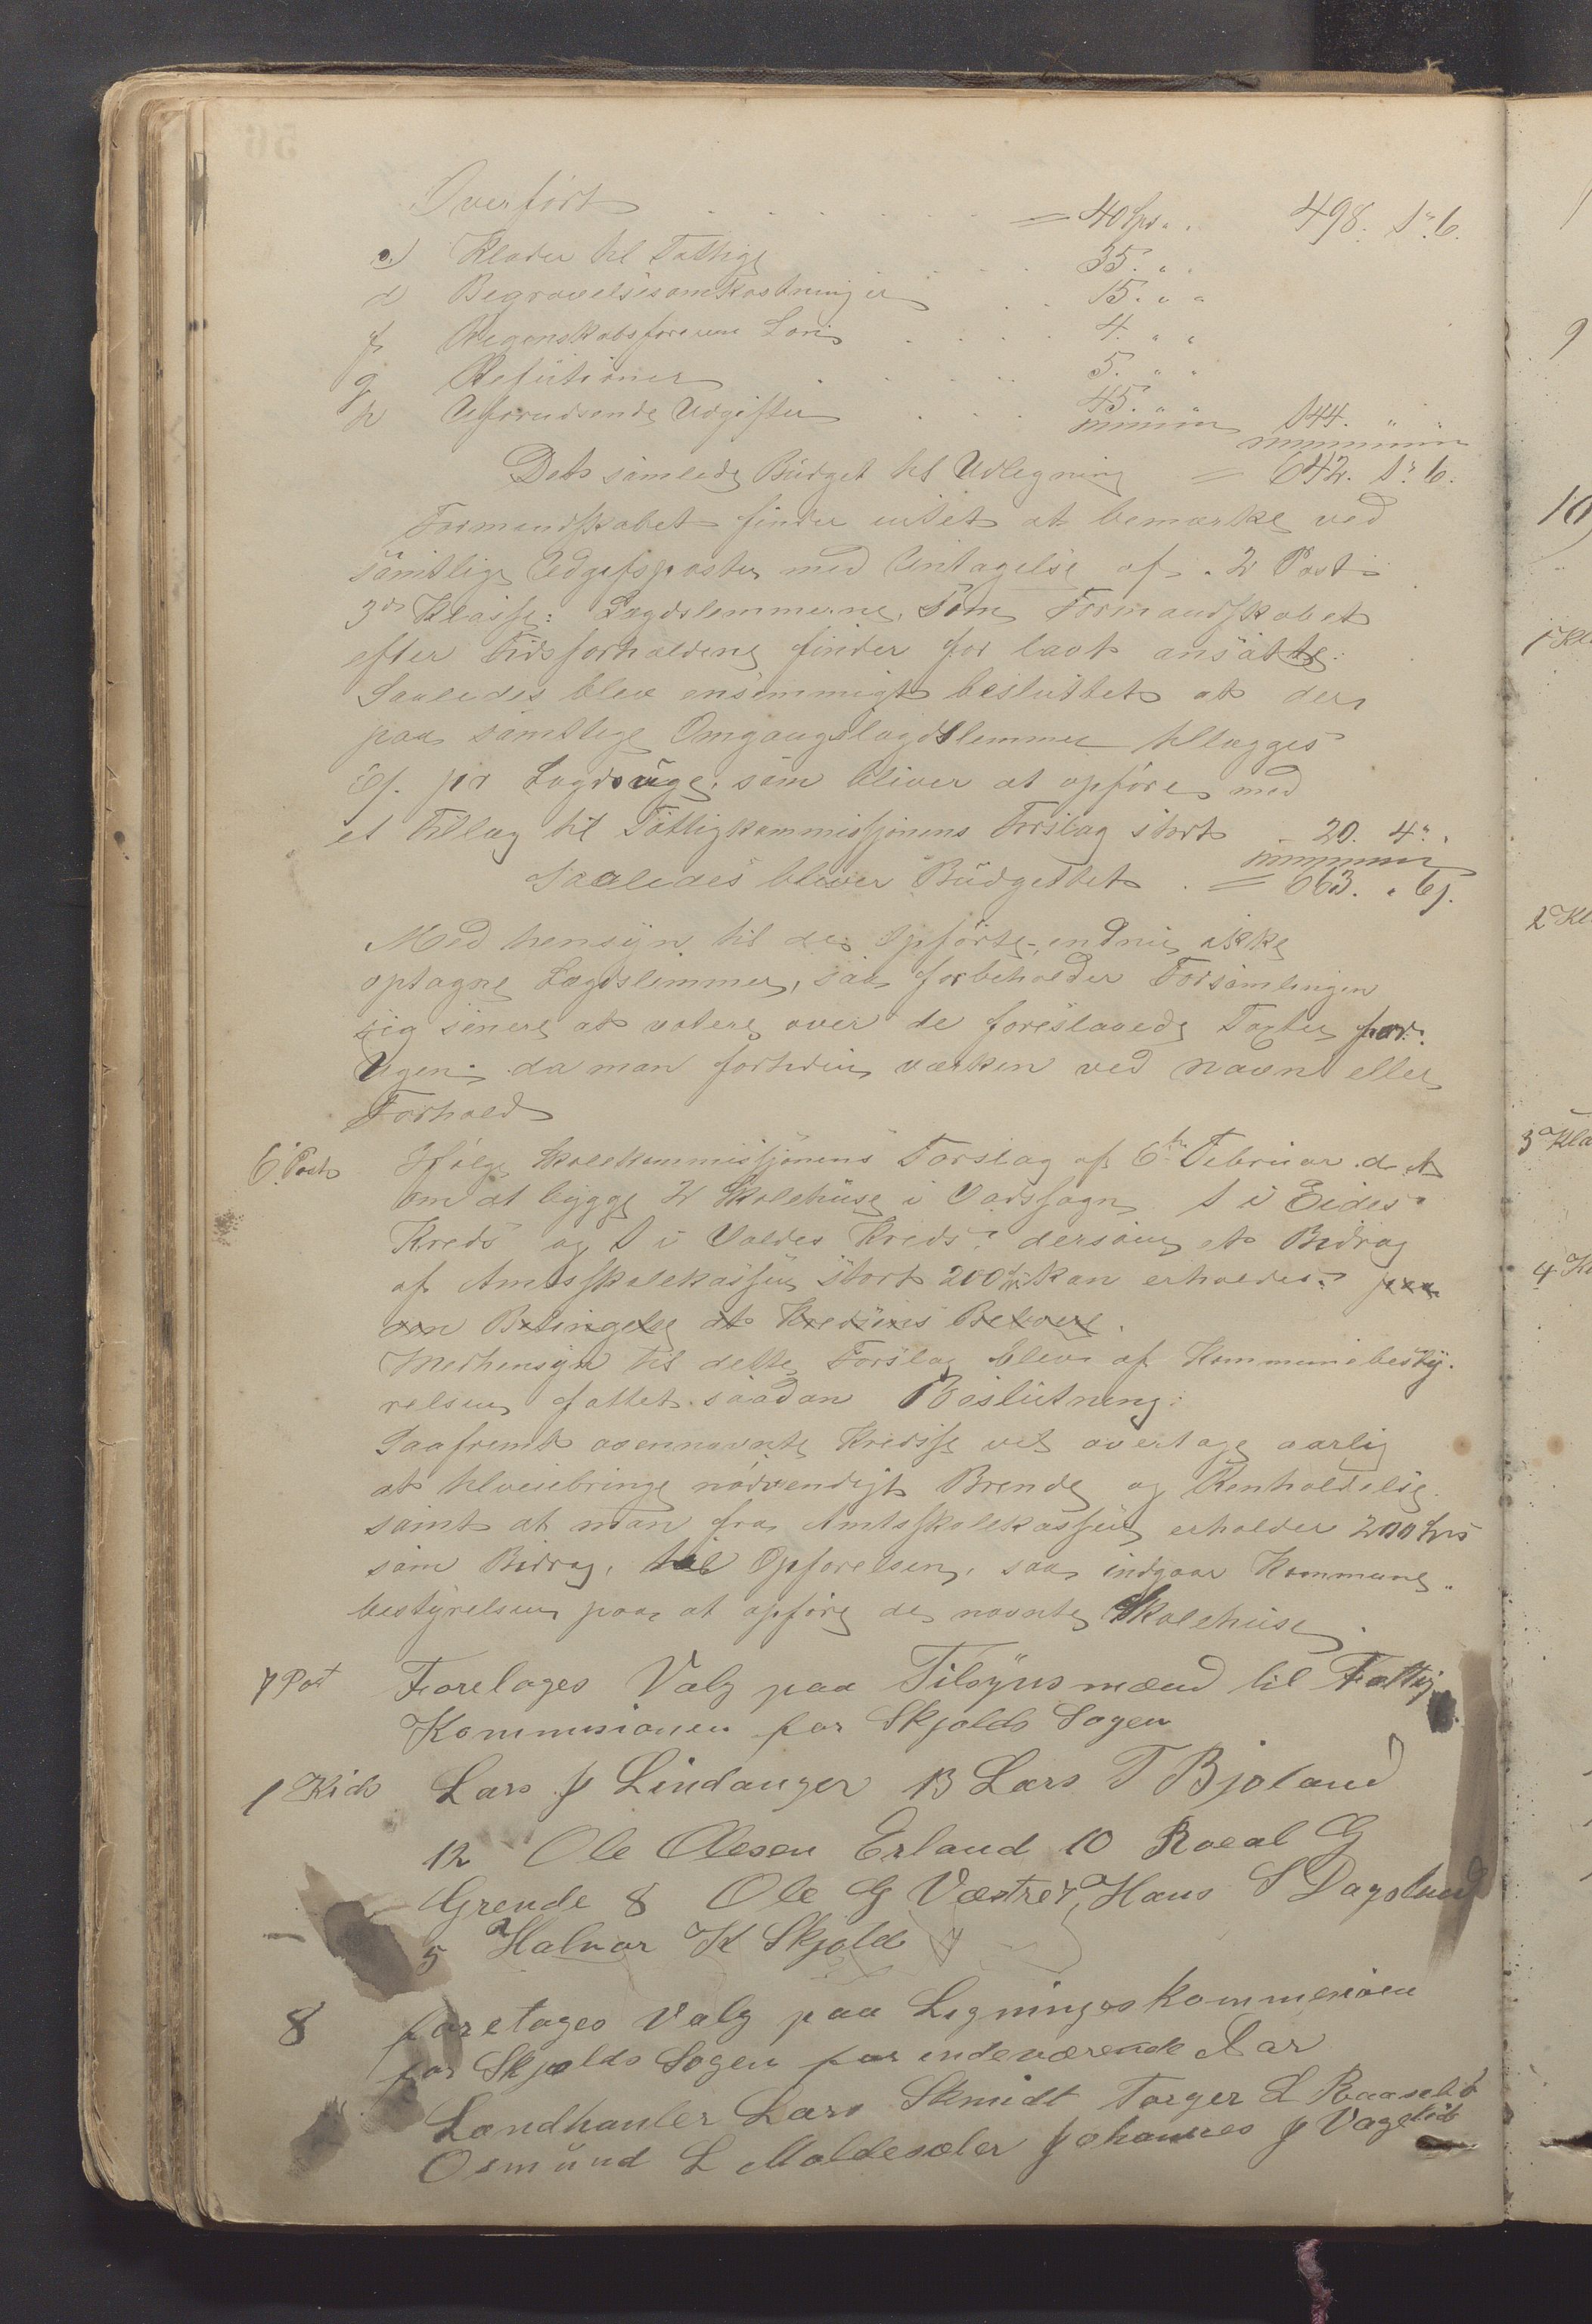 Overført . . . . . . . = 40 Spd. „ „ 498. 1 „ 6.
e) Klæder til Fattige . . . 35. „ „
d Begravelsesomkostninger . . 15. „ „
f Regenskabsførerens Løn . . . . 4. „ „
g Refusioner . . . . 5. „ „
h Uforudseende Udgifter . . . 45. „ „ 144. „ „
Det samlede Budget til Udlegning = 642. 1 „ 6.
Formandskabet finder intet at bemærke ved
samtlige Udgifsposter med Untagelse af 2 Post
3die Klasse: Lægdslemmerne, som Formandskabet
efter Tidsforholdene finder for lavt ansatte.
Saaledes blev enstemmigt besluttet at der
paa samtlige Omgangslægdslemmer tillægges
6 s. pr Lægdsuge, som bliver at opføre med
et Tillæg til Fattigkommissjonens Forslag stort 20. 4 „
Saaledes bliver Budgettet = 663. „ 6 s.
Med hensyn til de Opførte, endnu ikke
optagne Lægdslemmer, saa forbeholder Forsamlingen
sig senere at votere over de foreslaaede Taxter for
Ugen da man fortiden værken ved navn eller
Forhold
6. Post Ifølge Skolekommissjonens Forslag af 6te Februar d. A
om at bygge 2 Skolehuse i Vadssogn 1 i Eides
Kreds og 1 i Valdes Kreds dersom et Bidrag
af Amtsskolekassen stort 200 Spd kan erholdes paa
den Betingelse at Kredsens Beboere.
Medhensyn til dette Forslag blev af Kommunebesty-
relsen fattet saadan Beslutning:
Saafremt ovennævnte Kredse vil overtage aarlig
at tilveiebringe nødvendigt Brende og Renholdelse
samt at man fra Amtsskolekassen erholder 200 Spd
som Bidrag, til Opførelsen, saa indgaar Kommune-
bestyrelsen paa at opføre de nævnte Skolehuse.
7 Post Foretoges Valg paa Tilsynsmænd til Fattig
Kommisionen for Skjolds Sogen
1 Kids Lars J Lindanger 13 Lars T Bjoland
12 Ole Olesen Erland 10 Roeal G
Grende 8 Ole G Væstre 7, Hans S Dagsland
5 Halvor K Skjold
8 foretoges Valg paa Ligningskommenionen
for Skjolds Sogen for indeværende Aar
Landhanler Lars Skmidt Torger L
Osmund L Maldesæter Johannes J